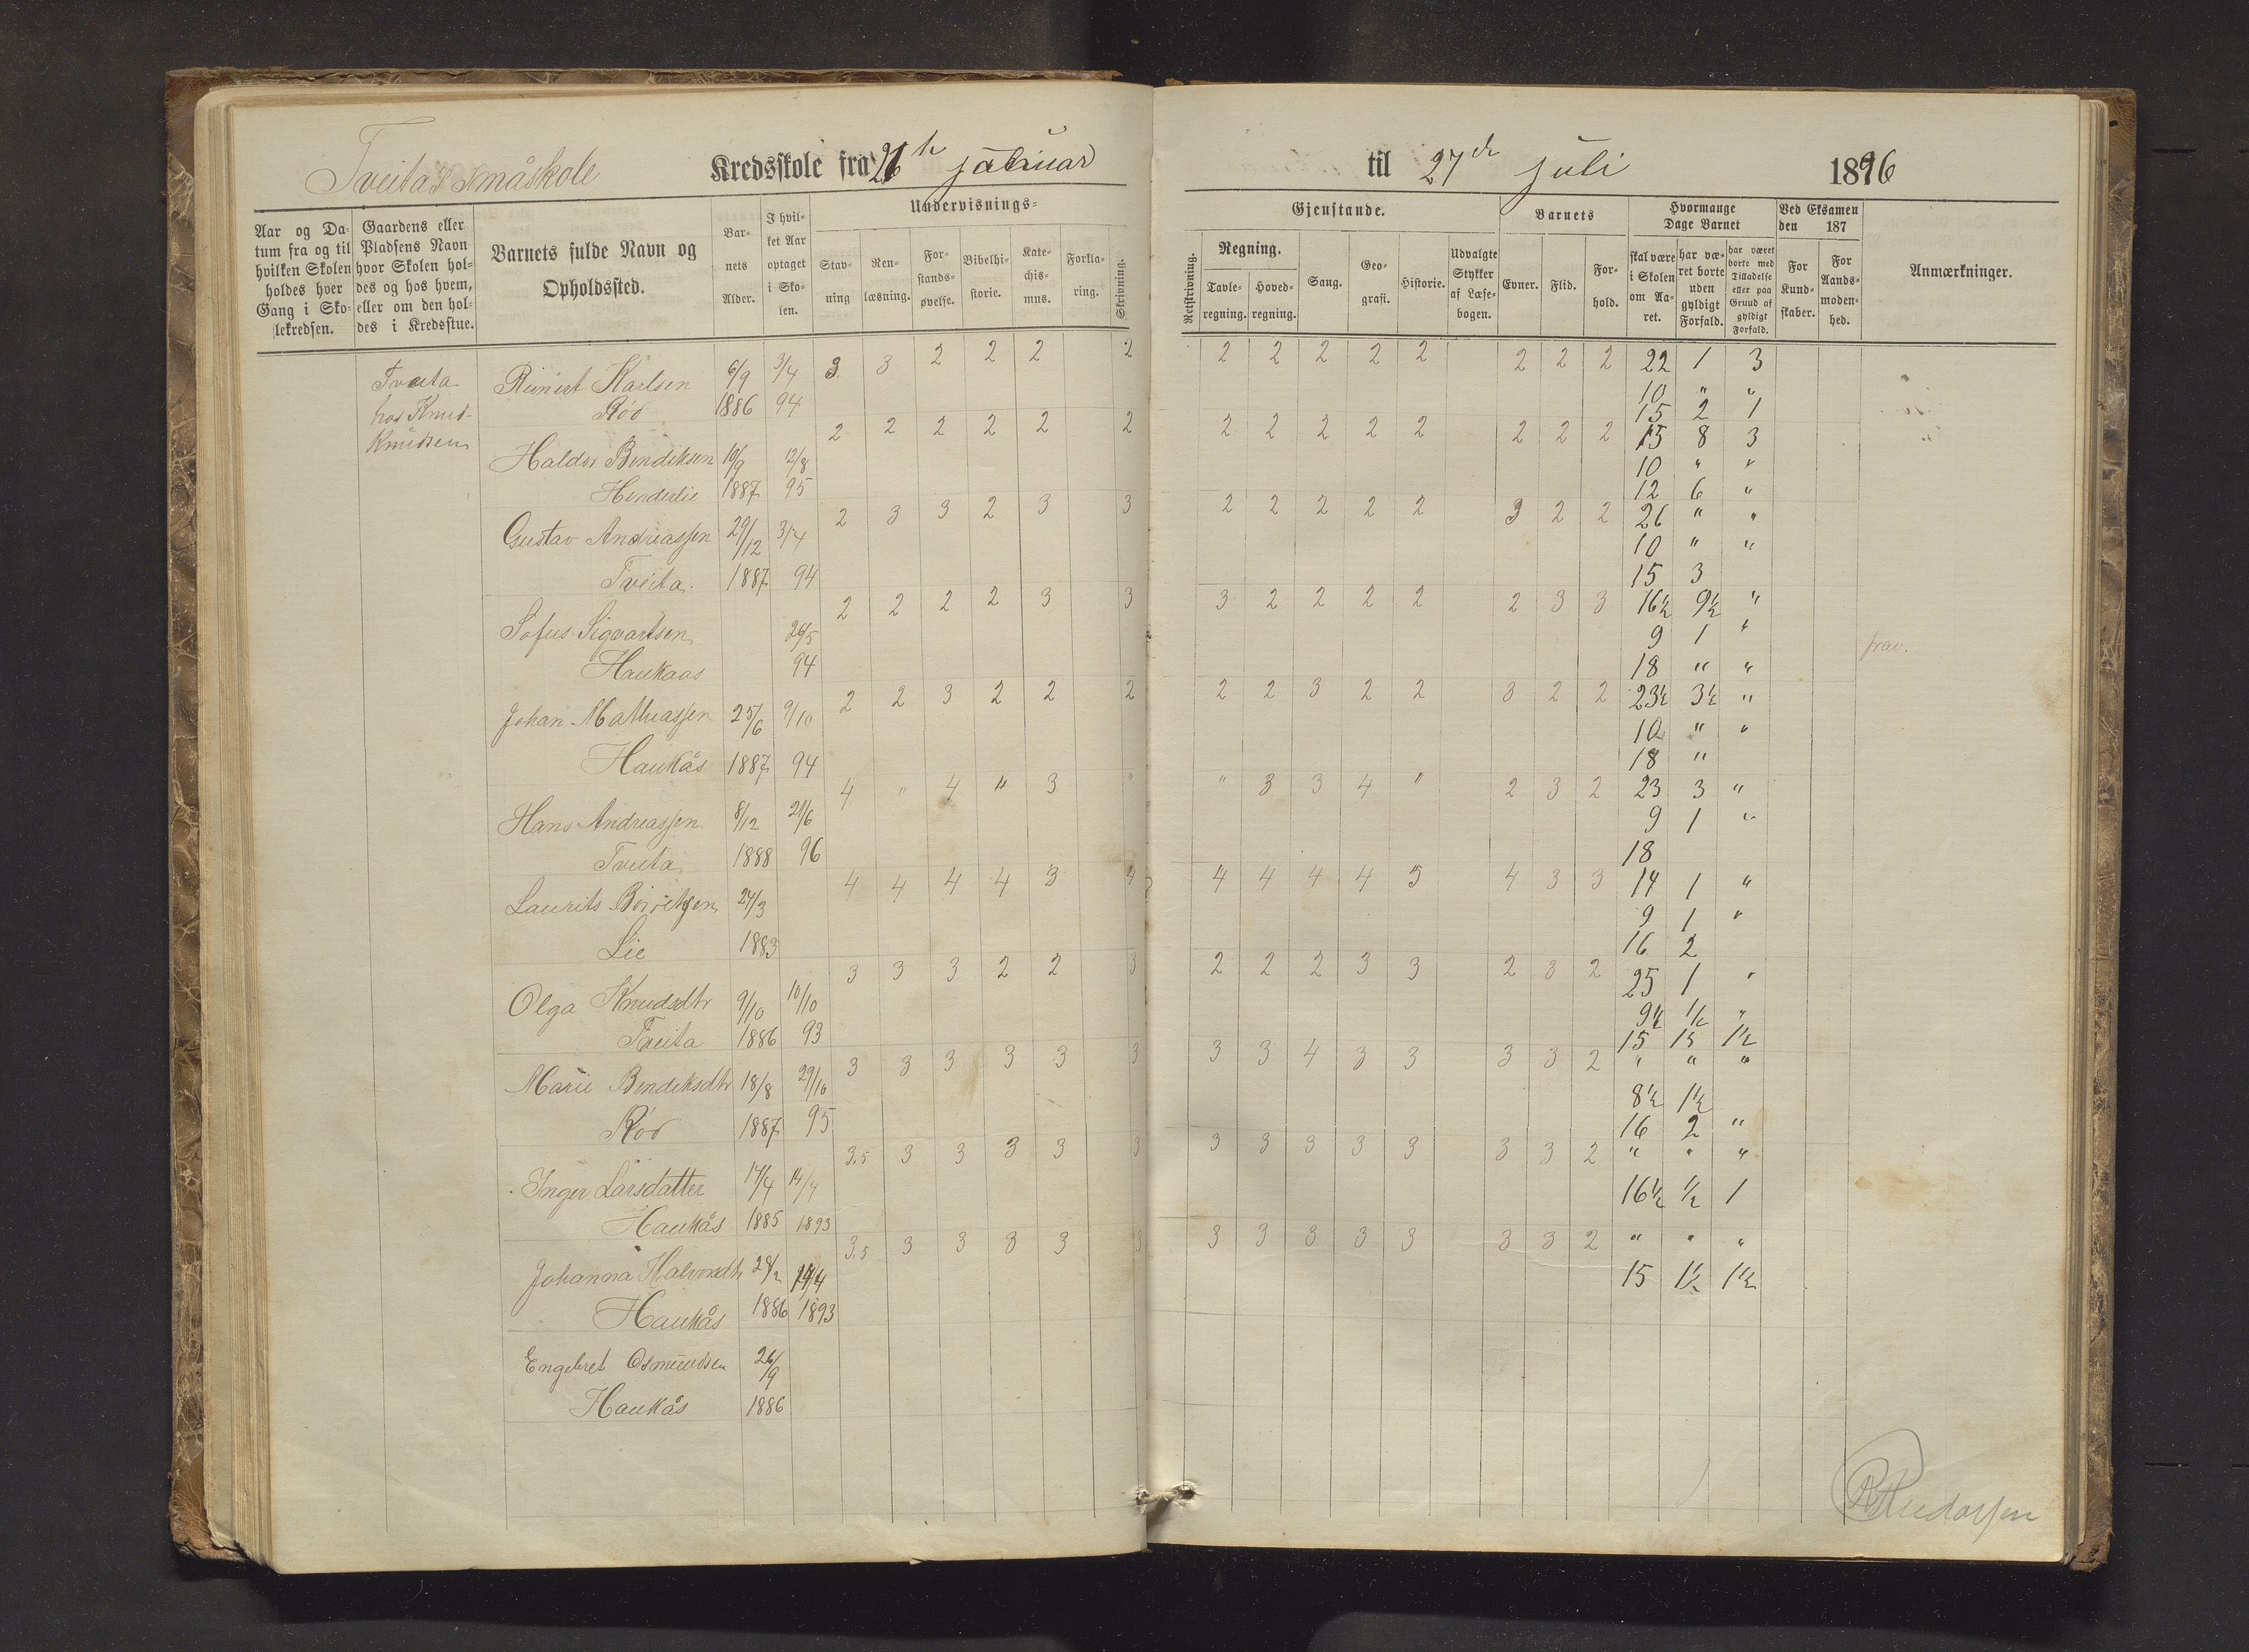 Tveitas småskole Kredsskole fra 21de januar til 27de juli 1896
Aar og Datum fra og til hvilken Skolen holdes hver Gang i Skolekredsen.
Gaardens eller Pladsens Navn hvor Skolen holdes og hos hvem, eller om den holdes i Kredsstue.
Barnets fulde Navn og Opholdssted.
Barnets Alder.
I hvilket Aar optaget i Skolen.
Undervisnings- Gjenstande.
Stavning Renlæsning. Forstandsøvelse. Bibelhistorie. Katechismus. Forklaring. Skrivning.
Retskrivning. Regning. Tavleregning. Hovedregning. Sang. Geografi. Historie. Udvalgte Stykker af Læsebogen.
Barnets Evner. Flid. Forhold.
Hvormange Dage Barnet
skal være i Skolen om Aaret. har været borte uden gyldigt Forfald. har været borte med Tilladelse eller paa Grund af gyldigt Forfald.
Ved Eksamen den 187
For Kundskaber. For Aandsmodenhed.
Anmærkninger.
Tveita Reinert Karlsen 6/9 3/4 3 3 2 2 2 2 2 2 2 2 2 2 2 2 22 1 3
hos Knud- Rød 1886 94 10 " "
Knudsen 15 2 1
Haldor Bendiksen 10/9 12/8 2 2 2 2 2 2 2 2 2 2 2 2 2 2 15 8 3
Henderlie 1887 95 10 " "
12 6 "
Gustav Andreassen 29/12 3/4 2 3 3 2 3 3 2 2 2 2 2 3 2 2 26 " "
10 " "
Tveita. 1887 94 15 3
Sofus Sigvartsen 26/5 2 2 2 2 3 3 3 2 2 2 2 2 3 3 16½ 9½ "
9 1 " frav.
Haukaas 94 18 " "
Johan Mathiassen 25/6 9/10 2 2 3 2 2 2 2 2 3 2 2 3 2 2 23½ 3½ "
10 " "
Haukås 1887 94 18 "
Hans Andreassen 8/12 21/6 4 " 4 " 3 " " 3 3 4 " 2 3 2 23 3 "
9 1 "
Tveita 1888 96 18
Laurits 24/3 4 4 4 4 3 4 4 4 4 4 5 4 3 3 14 1 "
9 1 "
Lie 1883 16 2
Olga Knudsdtr 9/10 10/10 3 3 3 2 2 3 2 2 2 3 3 2 3 2 25 1 "
9½ 1½ "
Tveita 1886 93 15 1½ 1½
Marie Bendiksdtr 18/8 29/10 3 3 3 3 3 3 3 3 4 3 3 3 3 2 " " "
8½ 1½
Rød 1887 95 16 2 "
Inger Larsdatter 17/4 14/4 3,5 3 3 3 3 3 3 3 3 3 3 3 3 2 " " "
Haukås 1885 1893 16½ ½ 1
Johanna Halvorsdtr 28/2 14/4 3,5 3 3 3 3 3 3 3 3 3 3 3 3 2 " " "
Haukås 1886 1893 15 1½ 1½
Engebret Osmundsen 26/9
Haukås 1886